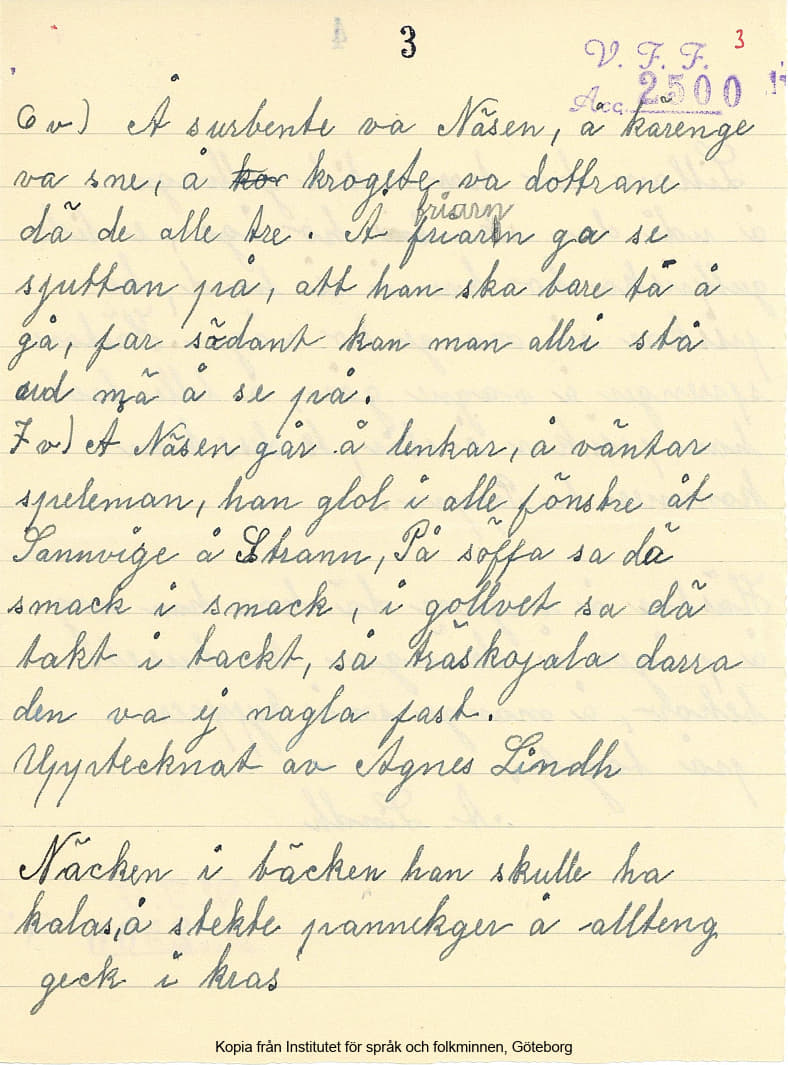 3
3
V. F. F.
Acc. 2500
6 v) Å surbente va Näsen, å kärenge
va sne, å kor krogete va dottrane
friarn
dä de alle tre. A friarin ga se
sjuttan på, att han ska bare tä å
gå, far södant kan man allri stå
ud mä å se på.
7 v) A Näsen går å lenkar, å väntar
speleman, han glol i alle fönstre åt
Sannvige å Strann, På söffa sa dä
smack i smack, i gollvet sa dä
takt i tackt, så träskojala darra
den va ej nagla fast.
Upptecknat av Agnes Lindh
Näcken i bäcken han skulle ha
kalas, å stekte pannekger å allteng
geck i kras
Kopia från Institutet för språk och folkminnen, Göteborg